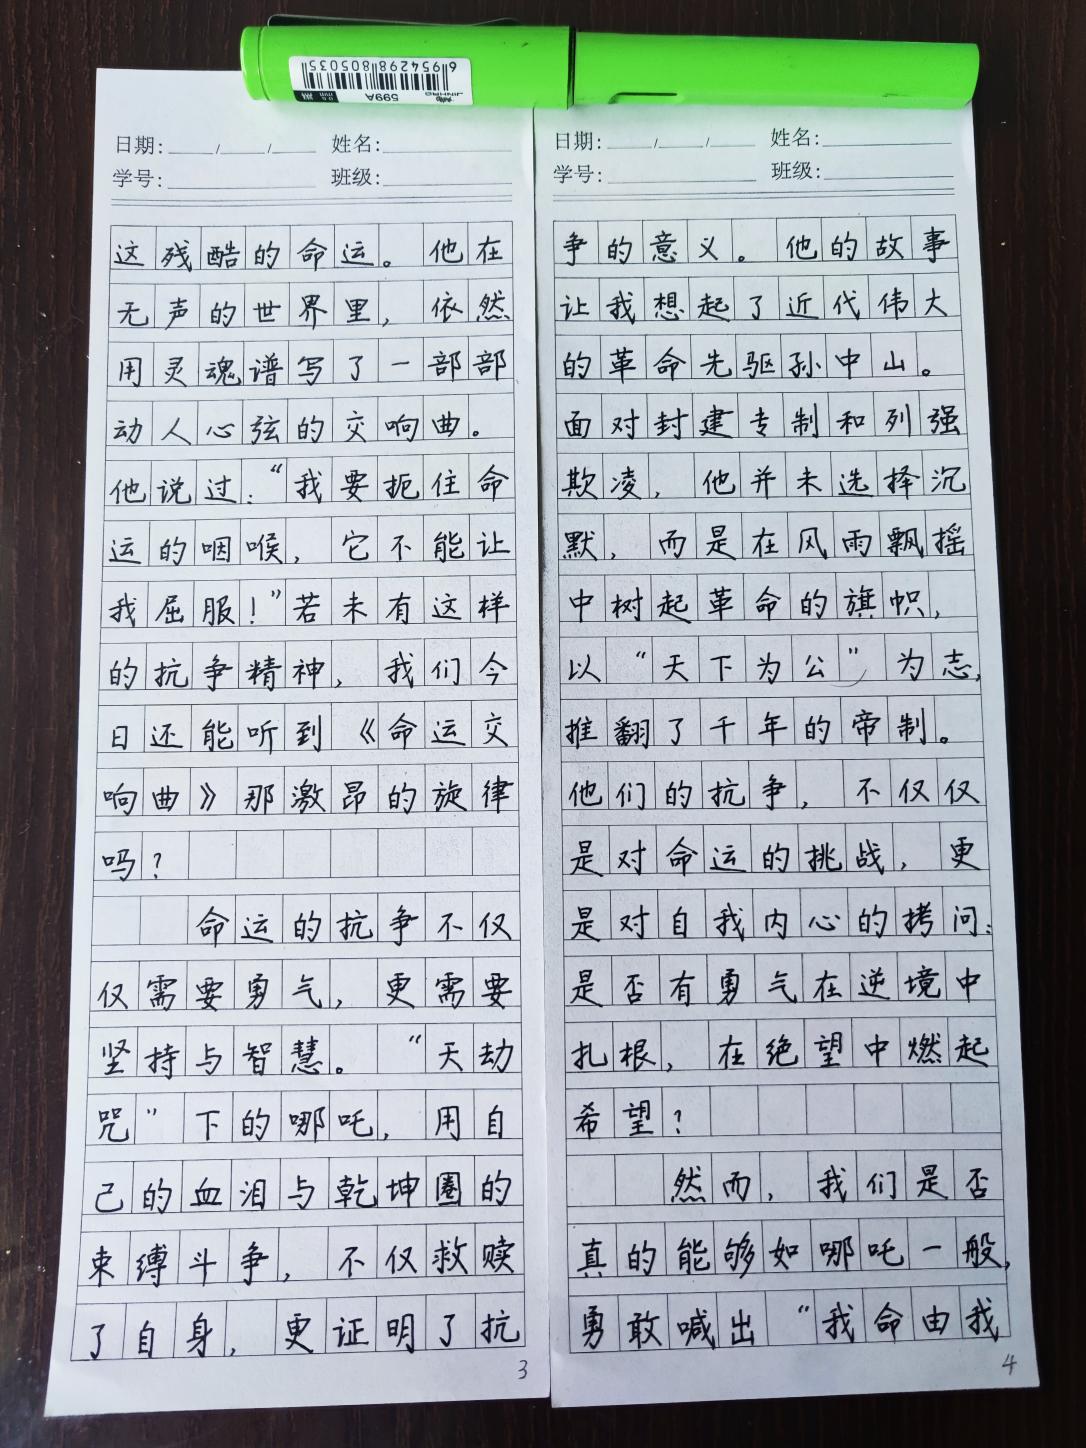 6954298805035
JINHAO
599A
日期: / / 姓名:
学号: 班级:
这残酷的命运。他在
无声的世界里，依然
用灵魂谱写了一部部
动人心弦的交响曲。
他说过：“我要扼住命
运的咽喉，它不能让
我屈服！”若未有这样
的抗争精神，我们今
日还能听到《命运交
响曲》那激昂的旋律
吗？
命运的抗争不仅
仅需要勇气，更需要
坚持与智慧。“天劫
咒”下的哪吒，用自
己的血泪与乾坤圈的
束缚斗争，不仅救赎
了自身，更证明了抗
3
日期: / / 姓名:
学号: 班级:
争的意义。他的故事
让我想起了近代伟大
的革命先驱孙中山。
面对封建专制和列强
欺凌，他并未选择沉
默，而是在风雨飘摇
中树起革命的旗帜，
以“天下为公”为志，
推翻了千年的帝制。
他们的抗争，不仅仅
是对命运的挑战，更
是对自我内心的拷问：
是否有勇气在逆境中
扎根，在绝望中燃起
希望？
然而，我们是否
真的能够如哪吒一般，
勇敢喊出“我命由我
4